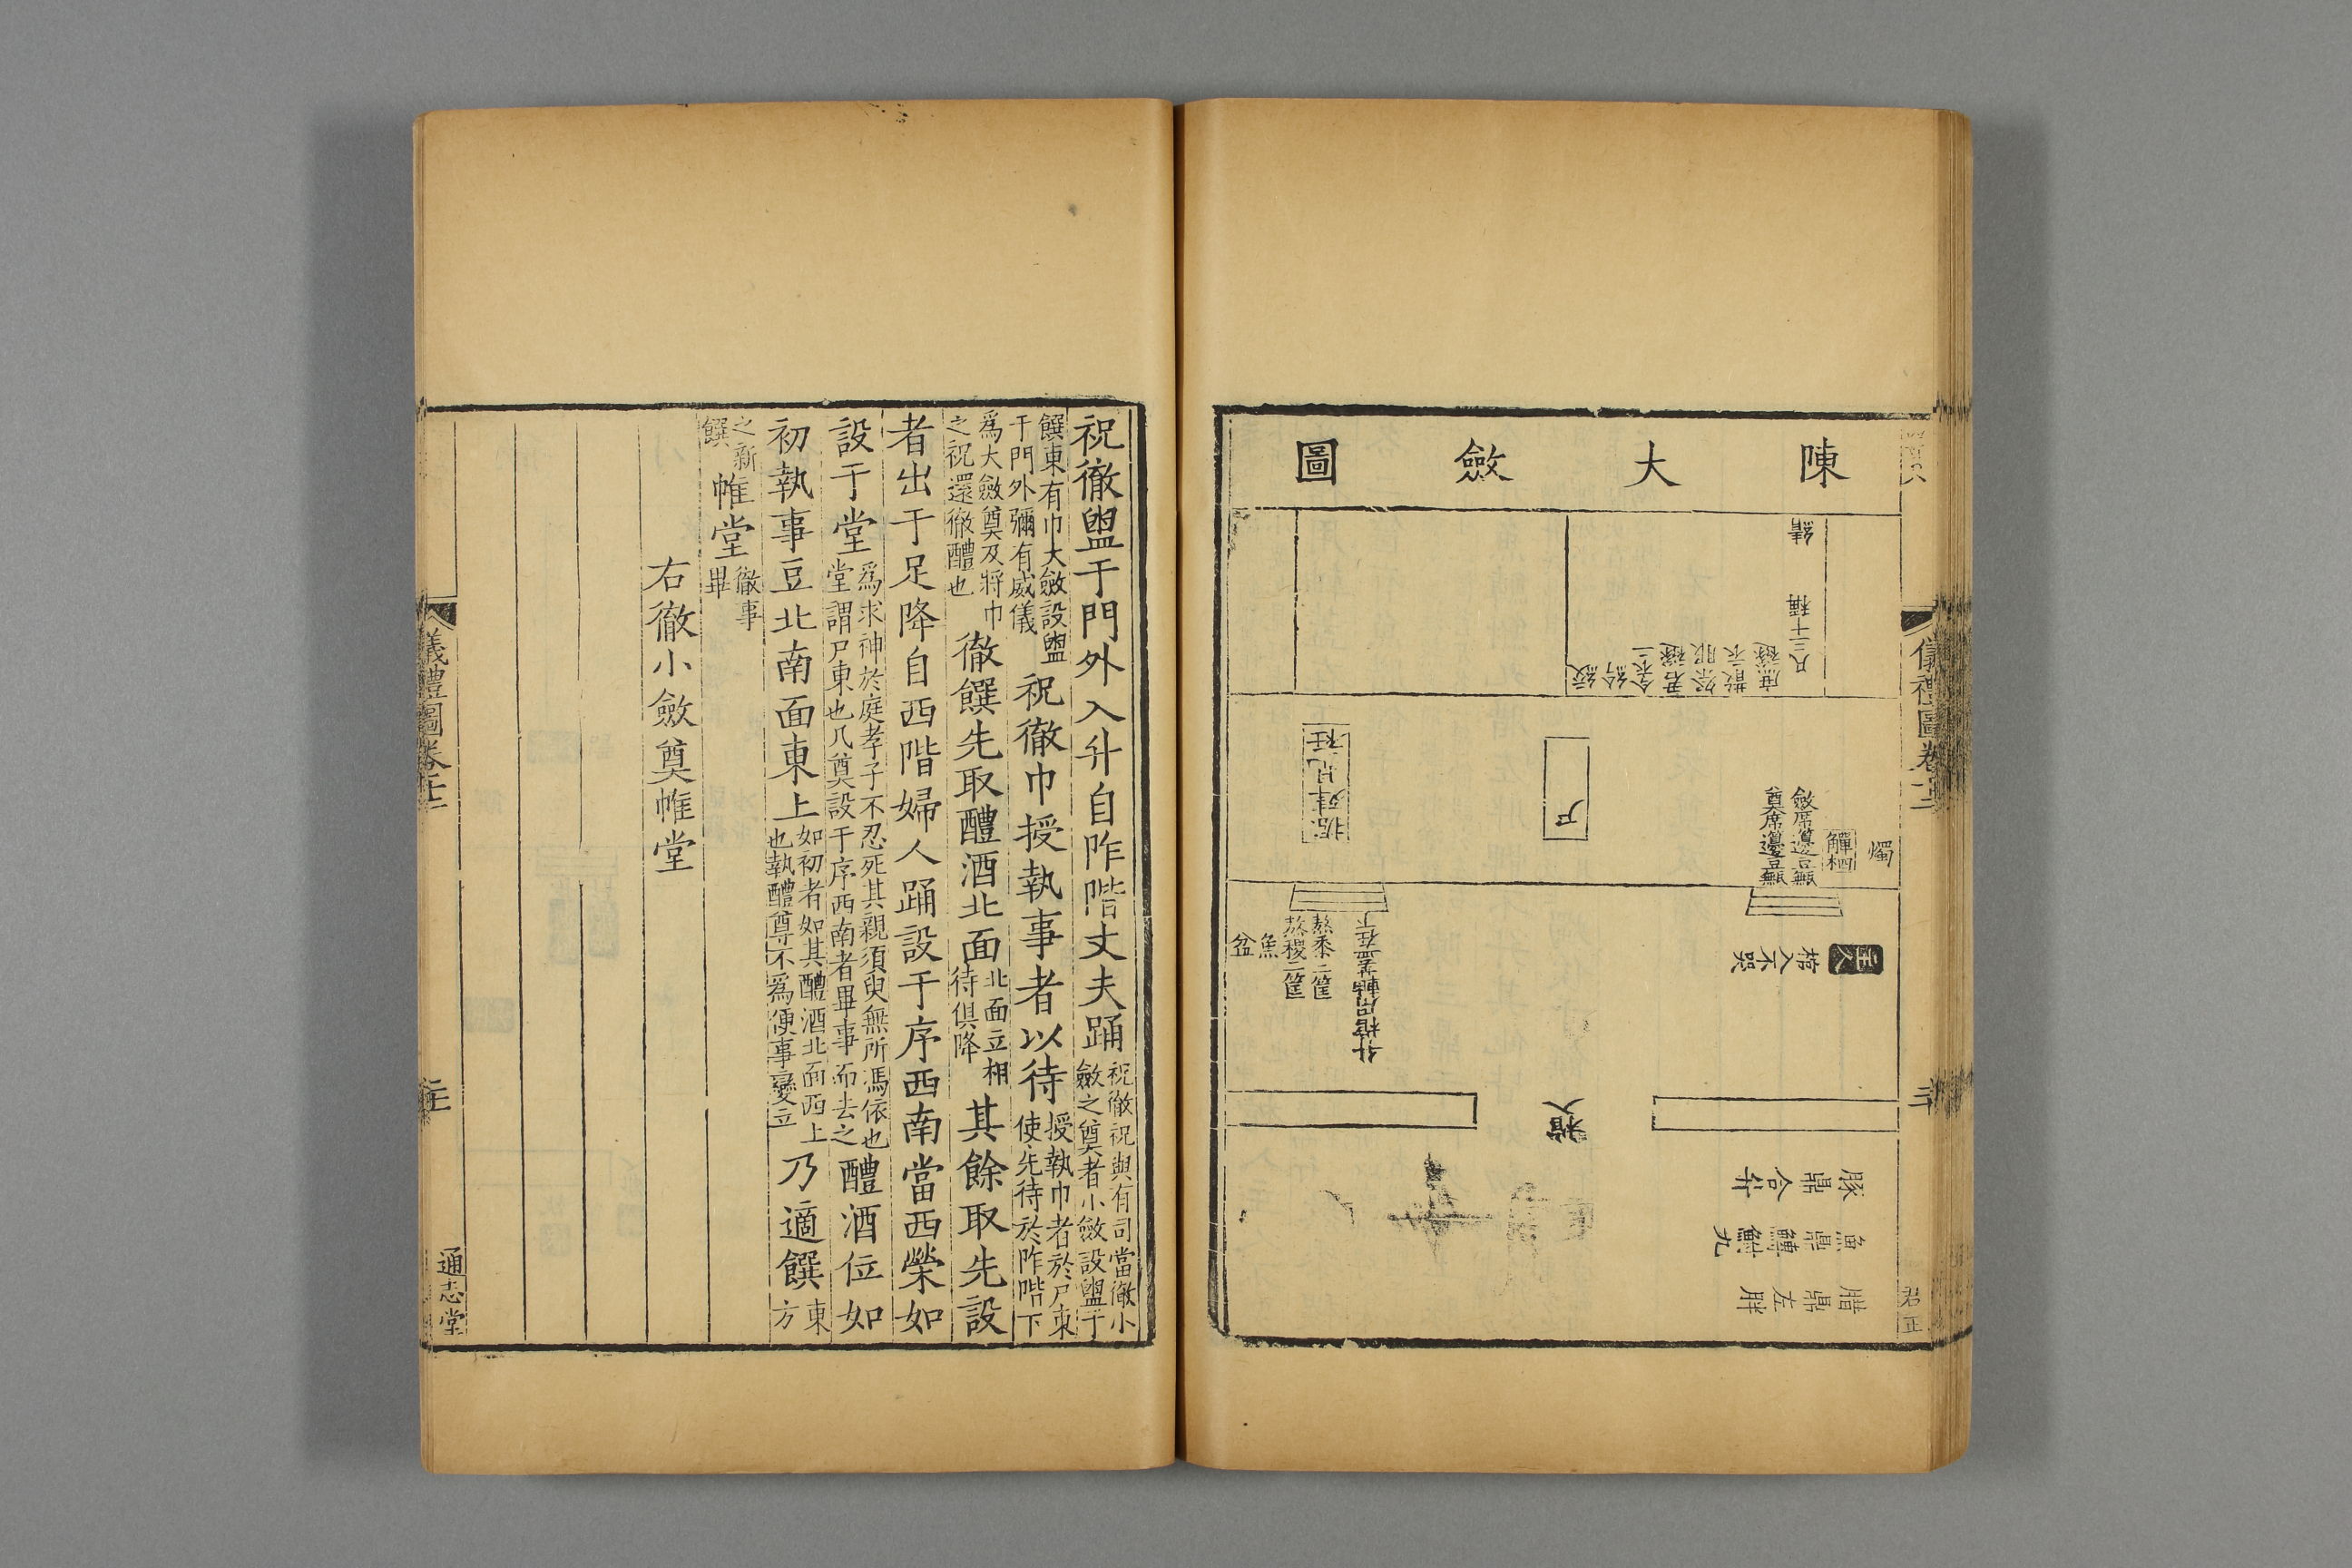 陳大斂圖
絞
紟
衾二
君襚
祭服
散衣
庶襚
凡三十稱
綪
尸
掘肂見衽
燭
觶柶
斂席籩豆甒
奠席籩豆甒
主人
棺入不哭
升棺用軸蓋在下
熬黍二筐
熬稷二筐
魚
盆
棺入
豚鼎合升
魚鼎鱄鮒九
腊鼎左胖
儀禮圖卷十二
祝徹盥于門外入升自阼階丈夫踊祝徹祝與有司當徹小斂之奠者小斂設盥于
饌東有巾大斂設盥于門外彌有威儀祝徹巾授執事者以待授執巾者於尸東使先待於阼階下
為大斂奠及將巾之祝還徹醴也徹饌先取醴酒北面北面立相待俱降其餘取先設
者出于足降自西階婦人踊設于序西南當西榮如
設于堂為求神於庭孝子不忍死其親須臾無所馮依也堂謂尸東也凡奠設于序西南者畢事而去之醴酒位如
初執事豆北南面東上如初者如其醴酒北面西上也執醴尊不為便事變立乃適饌東方
之新饌帷堂徹事畢
右徹小斂奠帷堂
儀禮圖卷十二
通志堂